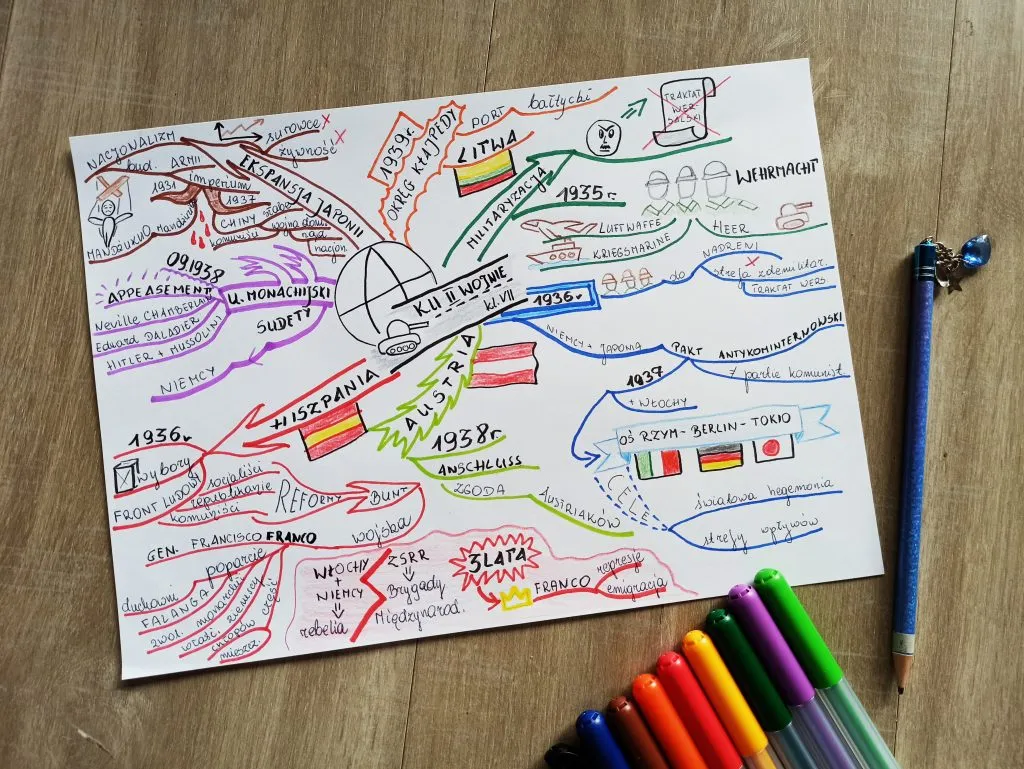 K.U II WOJNIE
kl. VII
EKSPANSJA JAPONII
NACJONALIZM
bud. ARMII
surowce
żywność
imperium
1931
1937
CHINY
słabe
wojna domo.
komuniści
nacjon.
MANDŻUKUO
1939r.
OKRĘG KŁAJPEDY
LITWA
PORT
bałtycki
MILITARYZACJA
TRAKTAT
WER-
SALSKI
1935r.
WEHRMACHT
LUFTWAFFE
KRIEGSMARINE
HEER
1936r.
do
NADRENI
strefa zdemilitar.
TRAKTAT WERS.
NIEMCY + JAPONIA
PAKT ANTYKOMINTERNOWSKI
partie komunist.
1937
+ WŁOCHY
OŚ RZYM-BERLIN-TOKIO
CELE
światowa hegemonia
strefy wpływów
AUSTRIA
1938r.
ANSCHLUSS
ZGODA
AUSTRIAKÓW
09.1938
U. MONACHIJSKI
APPEASEMENT
Neville CHAMBERLAIN
Eduard DALADIER
HITLER + MUSSOLINI
SUDETY
NIEMCY
HISZPANIA
1936r.
wybory
FRONT LUDOWY
socjaliści
republikanie
komuniści
REFORMY
BUNT
wojska
GEN. FRANCISCO FRANCO
poparcie
duchowni
FALANGA
zwol. monarchii
właśc. ziemscy
część
chłopów
mieszcz.
WŁOCHY
+
NIEMCY
rebelia
ZSRR
Brygady
Międzynarod.
3 LATA
FRANCO
represje
emigracja